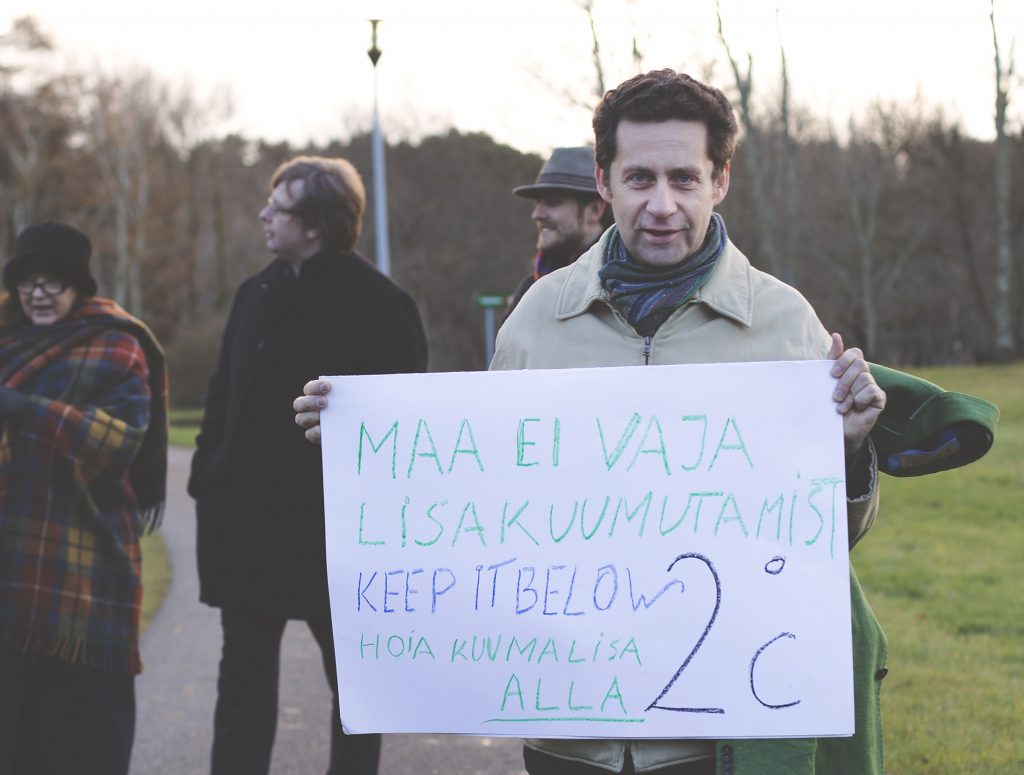 MAA EI VAJA
LISAKUUMUTAMIST
KEEP IT BELOW 2°C
HOIA KUUMALISA
ALLA